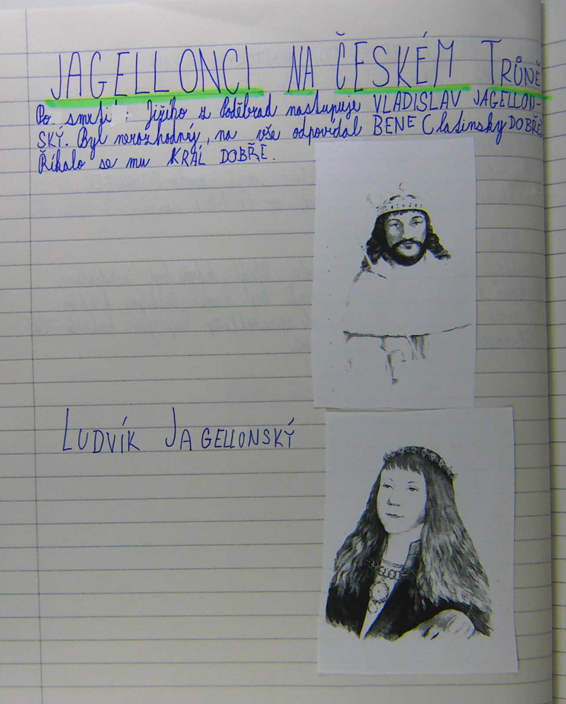 JAGELLONCI NA ČESKÉM TRŮNĚ
Po smrti: Jiřího z Poděbrad nastupuje VLADISLAV JAGELLON-
SKÝ. Byl nerozhodný, na vše odpovídal BENE (latinsky DOBŘE
Říkalo se mu KRÁL DOBŘE.
LUDVÍK JAGELLONSKÝ